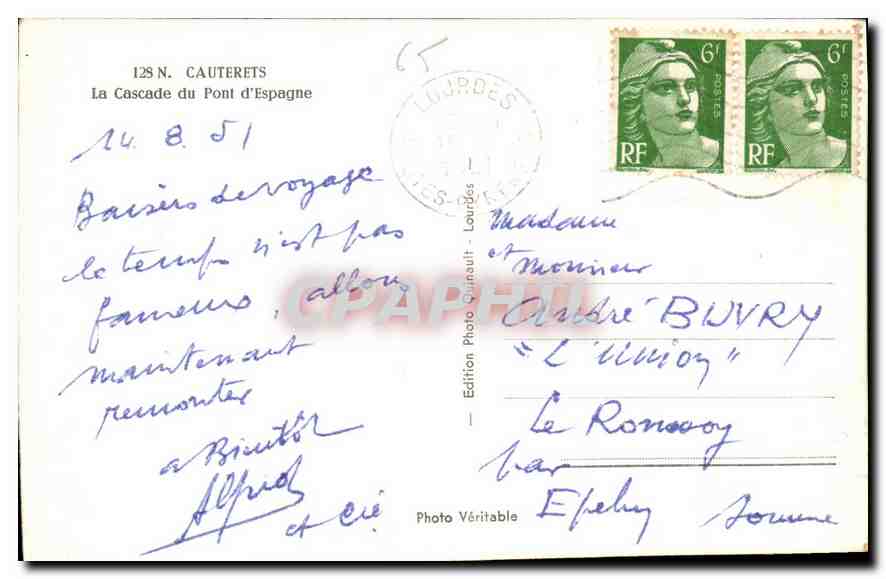 128 N. CAUTERETS
La Cascade du Pont d'Espagne
14. 8. 51
Baisers de voyage
le temps n'est pas
fameux, allons
maintenant
remonter
a Bientôt
Alfred
et Cie
65
LOURDES
6F
POSTES
RF
6F
POSTES
RF
Edition Photo Quinault - Lourdes
Madame
et
Monsieur
André BUVRY
"L'Union"
Le Ronssoy
par
Epehy Somme
Photo Véritable
CPAPHIL